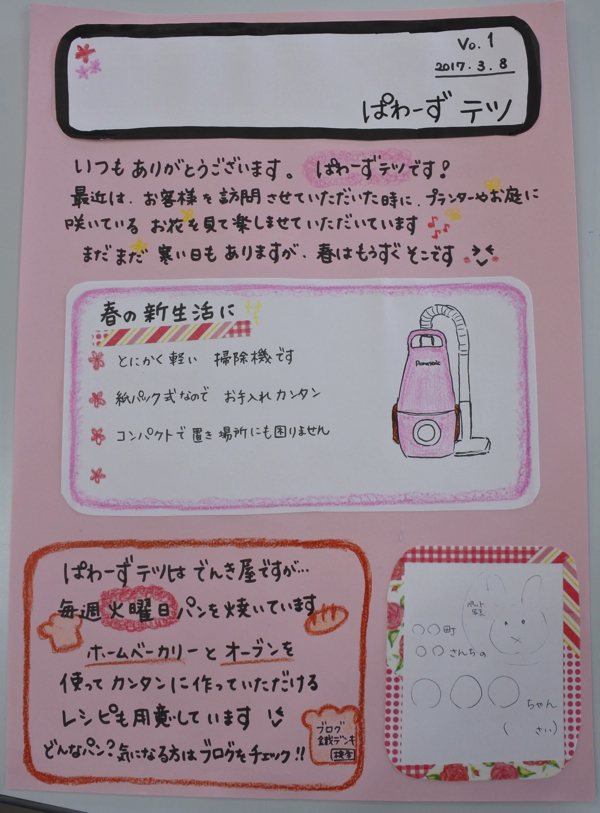 Vo.1
2017.3.8
ぱわーず テツ
いつも ありがとうございます。 ぱわーずテツです!
最近は、お客様を訪問させていただいた時に、プランターやお庭に
咲いている お花を見て楽しませていただいています
まだまだ 寒い日も ありますが、春はもうすぐ そこです
春の新生活に
とにかく軽い 掃除機です
紙パック式なので お手入れカンタン
コンパクトで置き場所にも困りません
Panasonic
ぱわーずテツは でんき屋ですが…
毎週 火曜日 パンを焼いています
ホームベーカリーと オーブンを
使って カンタンに作っていただける
レシピも用意しています
どんなパン?気になる方はブログをチェック!!
ブログ
鐵デンキ
検索
ペット
写真
○○町
○○さんちの
○○○ちゃん
( さい)